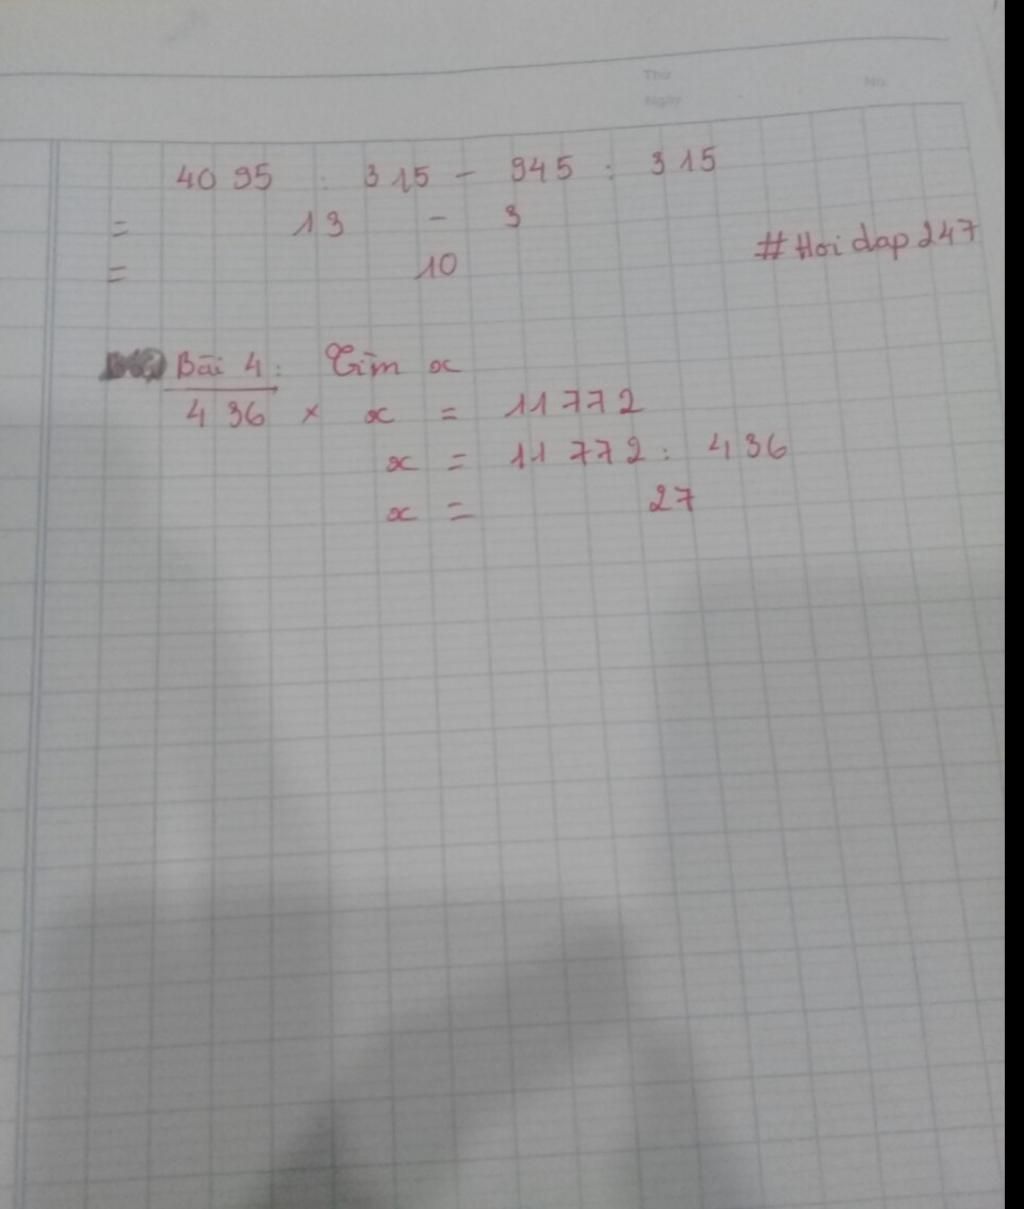 Thứ
Ngày
No.
4095 : 315 - 945 : 315
= 13 - 3
= 10
#Hoi dap 247
Bài 4: Tìm x
436 × x = 11772
x = 11772 : 436
x = 27